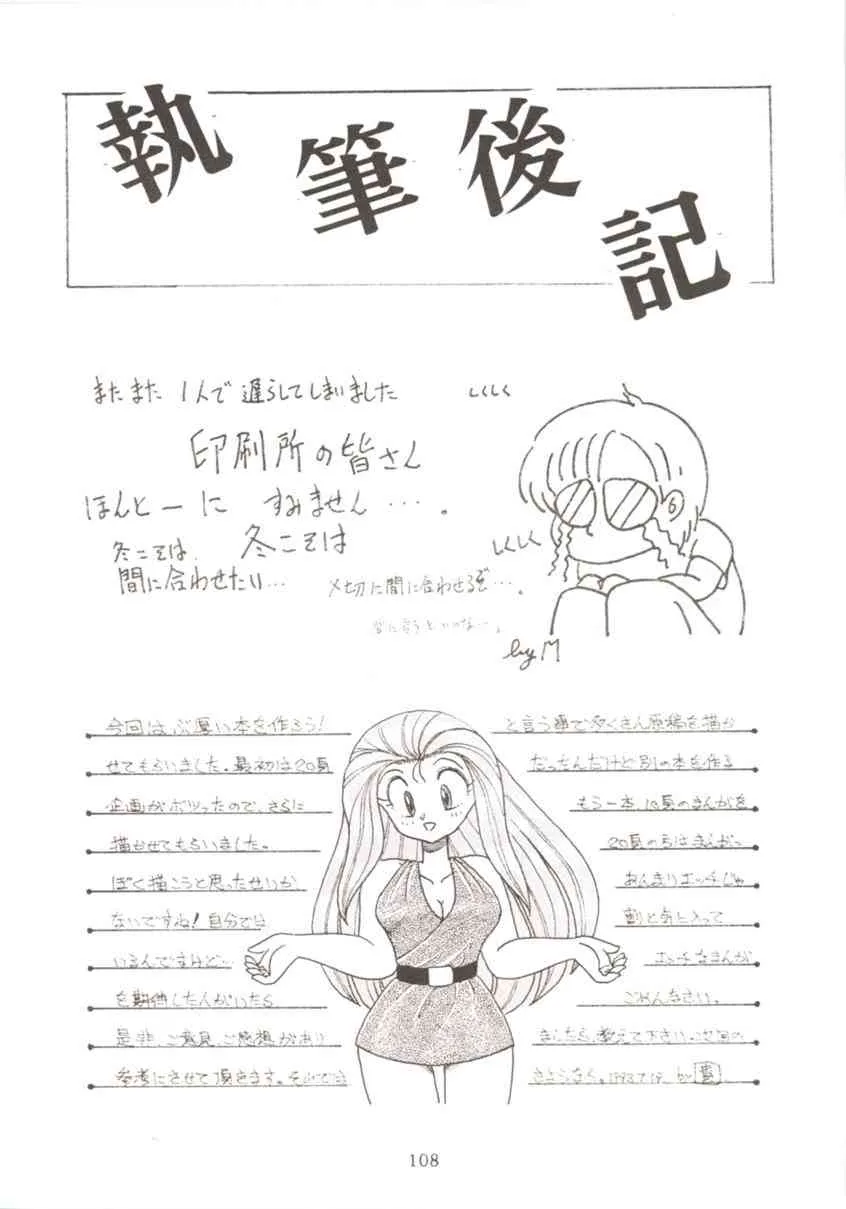 執筆後記
またまた 1人で遅らしてしまいました
しくしく
印刷所の皆さん
ほんとーに すみません…。
しくしく
冬こそは 冬こそは
間に合わせたい… 〆切に間に合わせるぞ…。
by M
今回はぶ厚い本を作ろう! と言う事でたくさん原稿を描か
せてもらいました。最初は20頁 だったんだけど別の本を作る
企画がボツったので、さらに もう一本、10頁のまんがを
描かせてもらいました。 20頁の方はまんがっ
ぽく描こうと思ったせいか あんまりエッチじゃ
ないですね!自分では 割と気に入って
いるんですけど… エッチなまんが
を期待した人がいたら ごめんなさい。
是非、ご意見、ご感想があり ましたら、教えて下さい。次回の
参考にさせて頂きます。それでは さようなら。1993.7.19. by
108